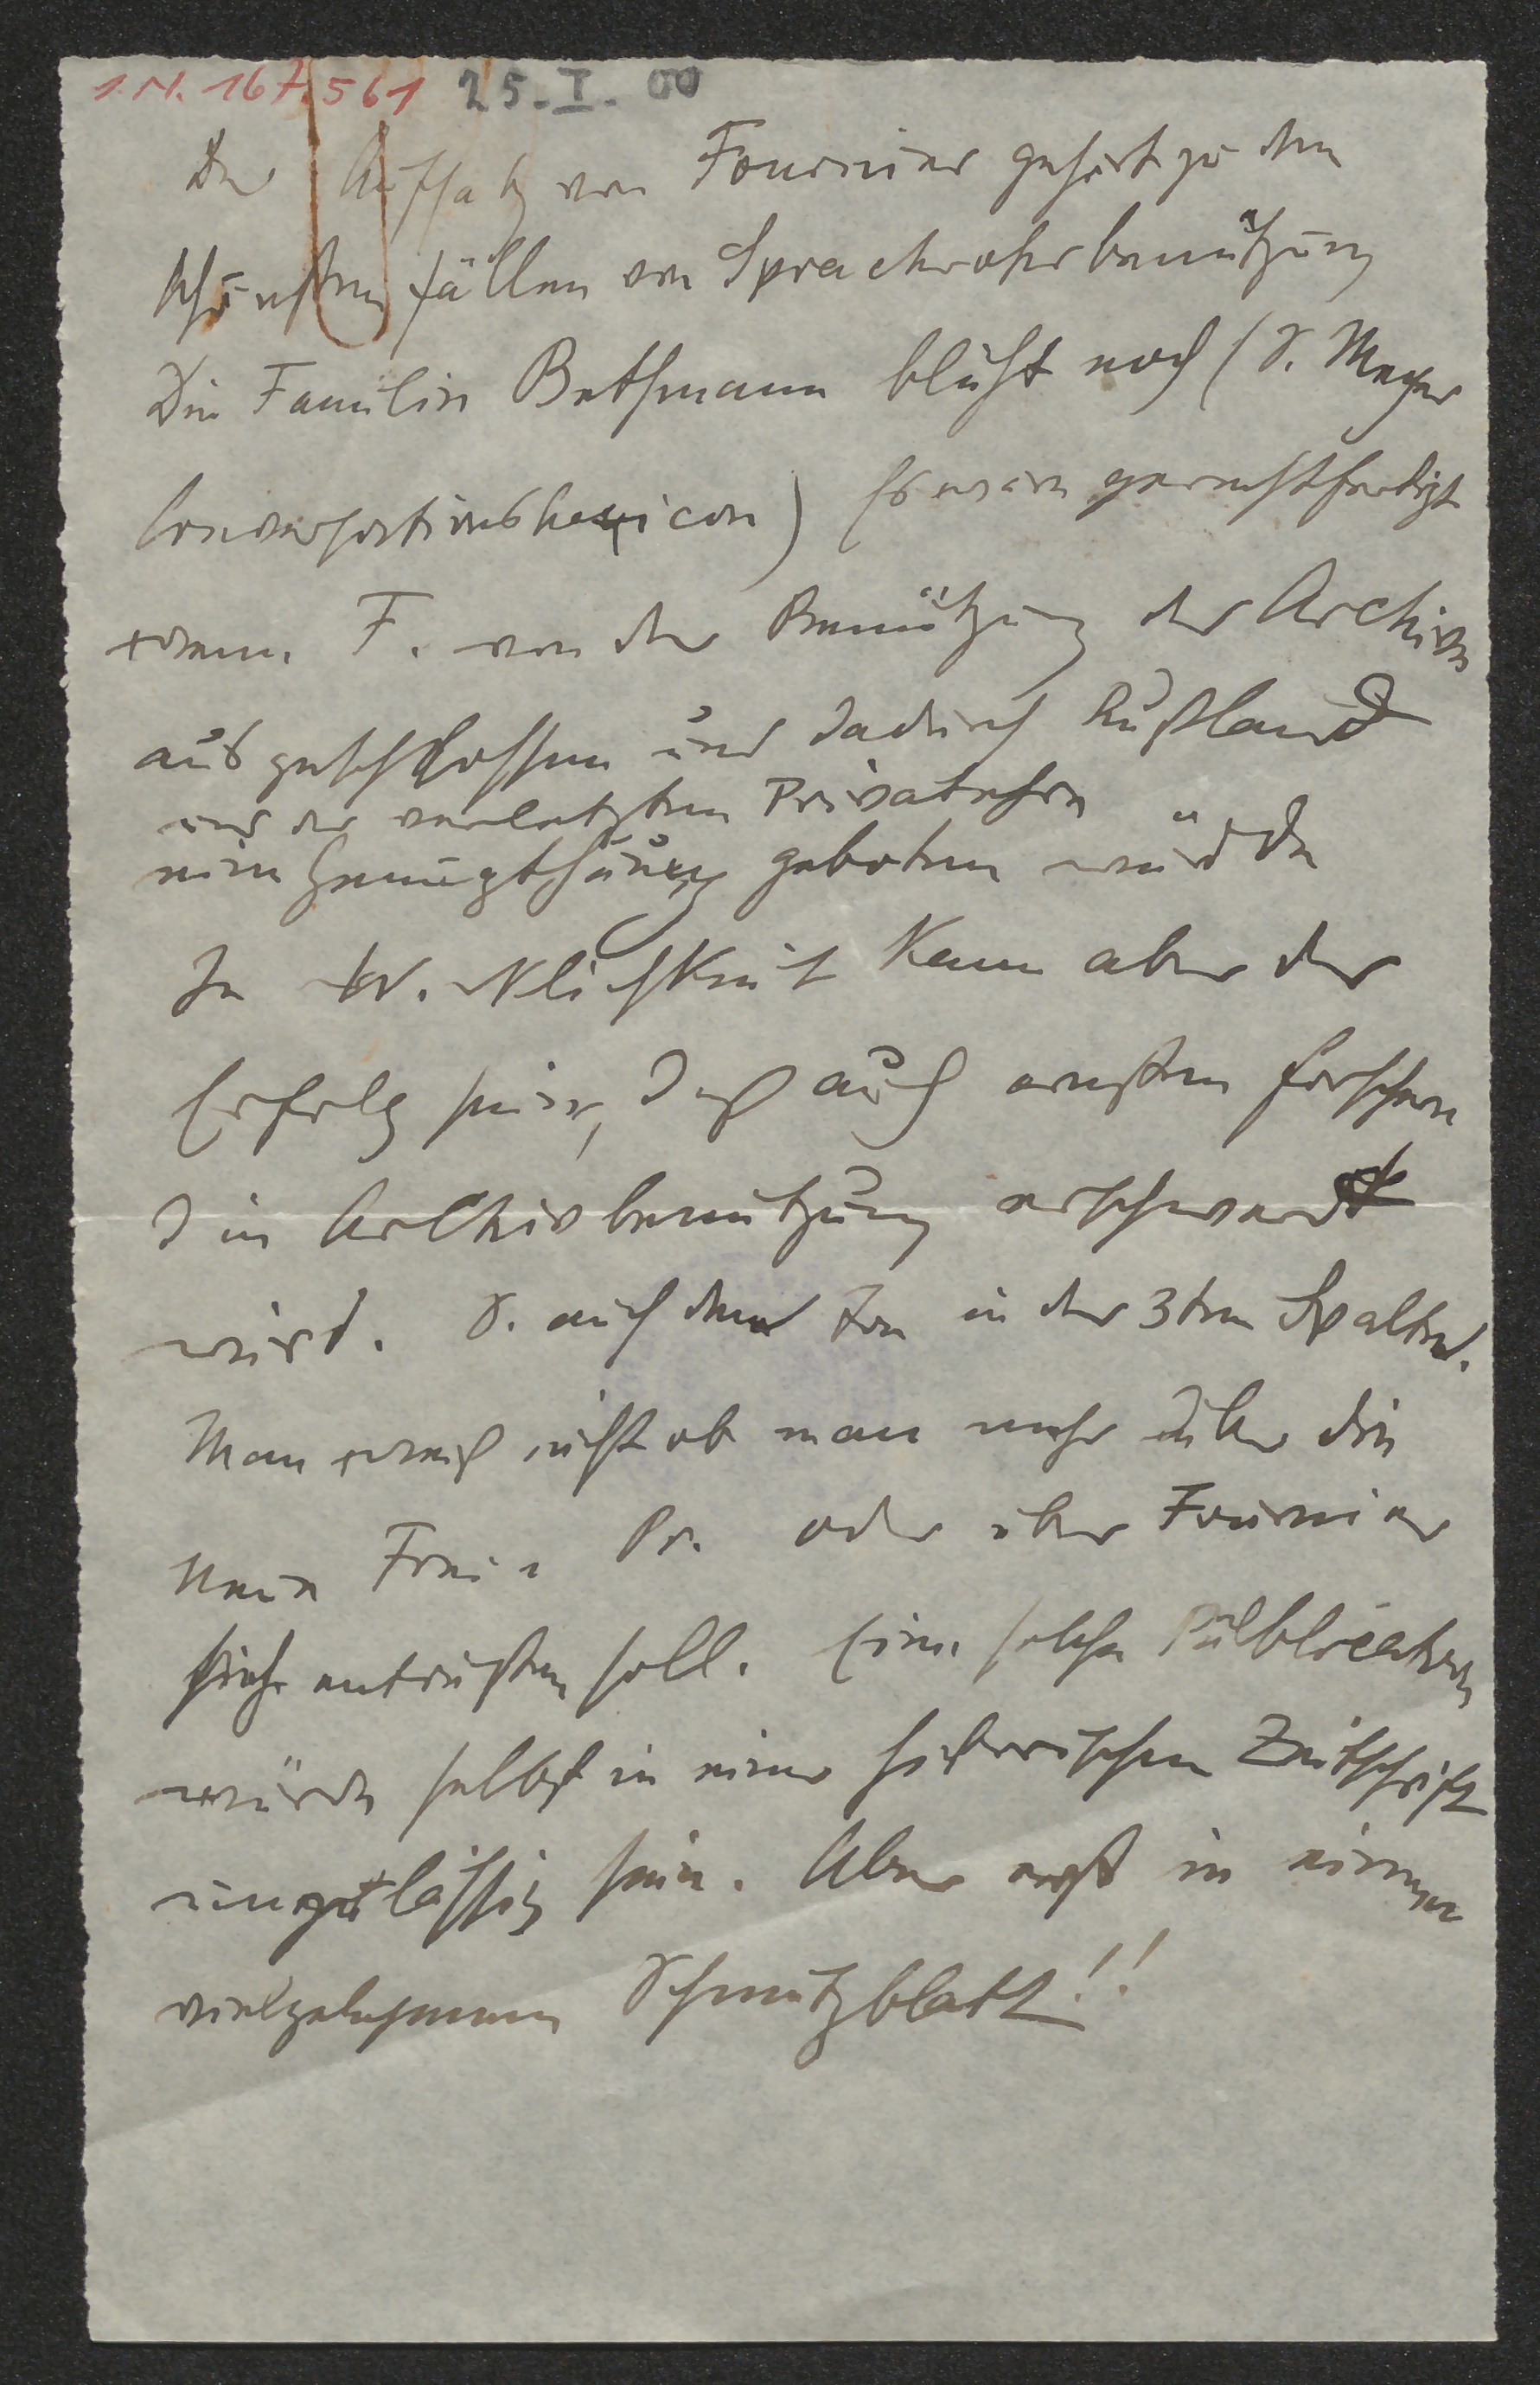 I.N. 167.561 25. I. 00
Der Aufsatz von Fournier gehört zu den
schönsten Fällen von Sprachrohrbenützung
Die Familie Bethmann blüht noch (S. Meyer
Conversationslexicon) Es wäre gerechtfertigt
wenn F. von der Benützung der Archive
ausgeschlossen und dadurch Rußland
und der verletzten Privatehre
eine Genugthuung geboten würde
In W. Nlichkeit kann aber der
Erfolg sein, daß auch ernsten Forschern
die Archivbenützung erschwert
wird. S. auch den Ton in der 3ten Spalte.
Man weiß nicht ob man mehr über die
Neue Freie Pr. oder über Fournier
sich entrüsten soll. Eine solche Publication
würde selbst in einer historischen Zeitschrift
unzulässig sein. Aber erst in einem
vielgelesenen Schmutzblatt!!